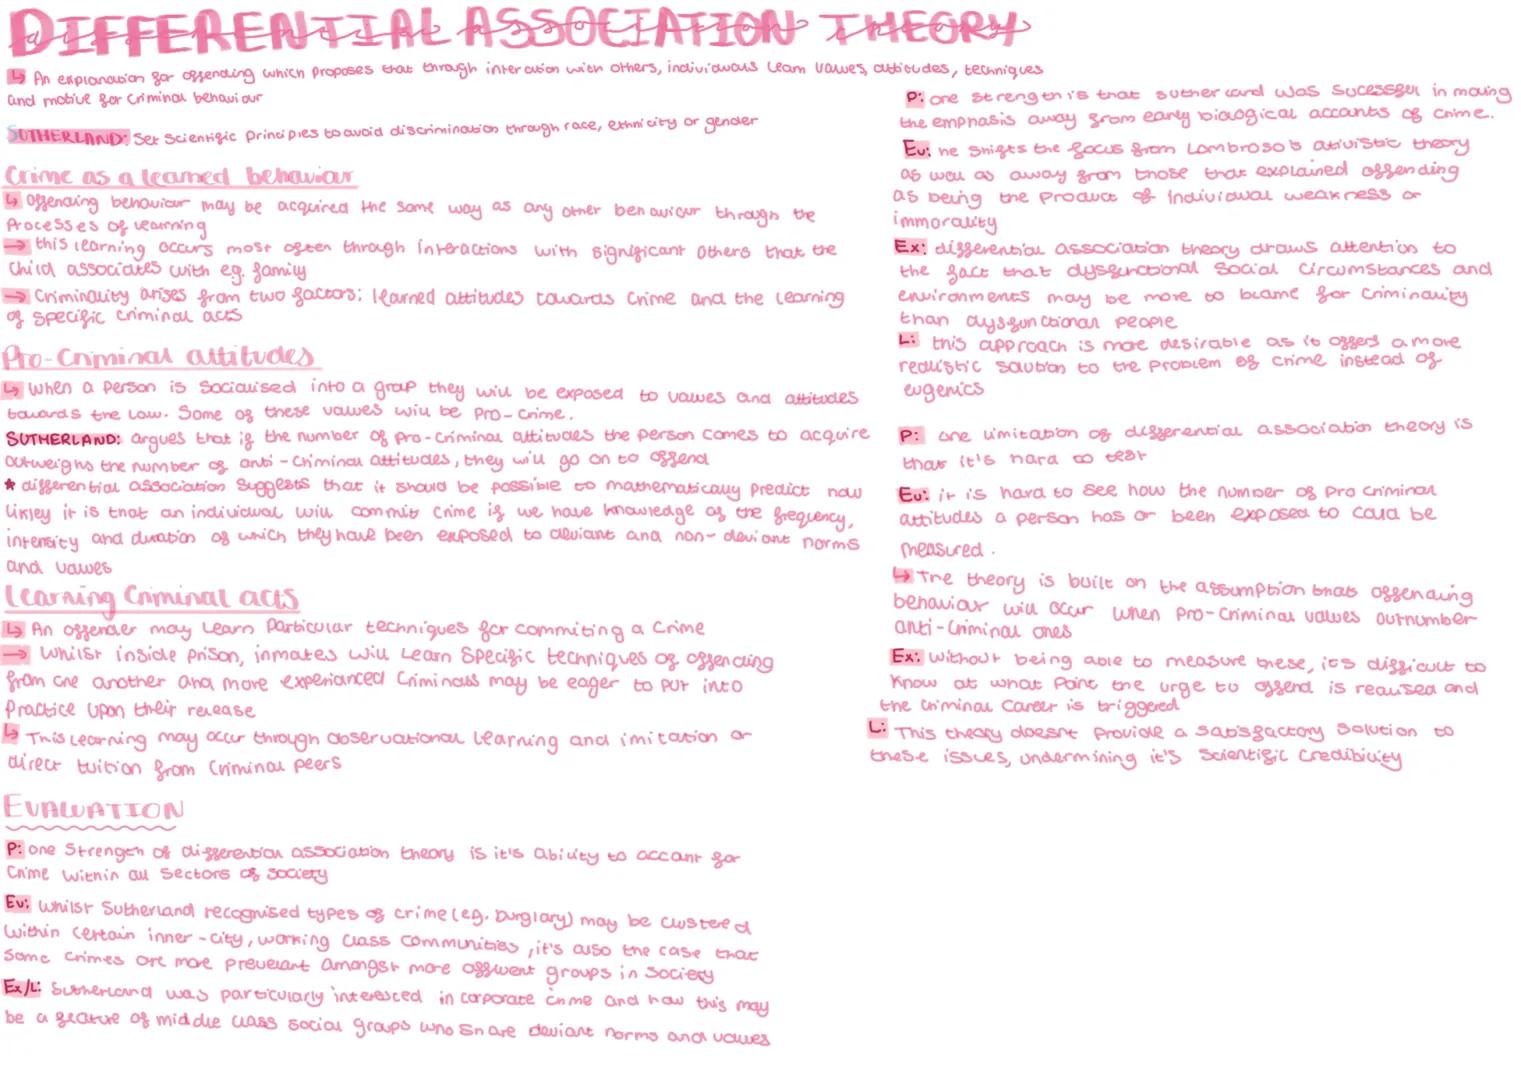 DIFFERENTIAL ASSOCIATION THEORY
↳ An explanation for offending which proposes that through interaction with others, individuals learn values, attitudes, techniques
and motive for criminal behaviour
SUTHERLAND: Set Scientific principles to avoid discrimination through race, ethnicity or gender
Crime as a learned behaviour
↳ Offending behaviour may be acquired the same way as any other behaviour through the
Processes of learning
→ this learning occurs most often through interactions with significant others that the
child associates with eg. family
→ Criminality arises from two factors; learned attitudes towards crime and the learning
of specific criminal acts
Pro-Criminal attitudes
↳ When a person is socialised into a group they will be exposed to values and attitudes
towards the law. Some of these values will be pro-crime.
SUTHERLAND: argues that if the number of pro-criminal attitudes the person comes to acquire
outweighs the number of anti-criminal attitudes, they will go on to offend
* differential association suggests that it should be possible to mathematically predict how
likley it is that an individual will commit crime if we have knowledge of the frequency,
intensity and duration of which they have been exposed to deviant and non-deviant norms
and values
Learning Criminal acts
↳ An offender may learn particular techniques for commiting a crime
→ Whilst inside prison, inmates will learn specific techniques of offending
from one another and more experianced criminals may be eager to put into
practice upon their release
↳ This learning may occur through observational learning and imitation or
direct tuition from criminal peers
EVALUATION
P: one strength of differential association theory is it's ability to account for
crime within all sectors of society
Ev: Whilst Sutherland recognised types of crime (eg. burglary) may be clustered
within certain inner-city, working class communities, it's also the case that
some crimes are more prevelant amongst more affluent groups in society
Ex/L: Sutherland was particularly interested in corporate crime and how this may
be a feature of middle class social groups who share deviant norms and values
P: one strength is that sutherland was sucessful in moving
the emphasis away from early biological accounts of crime.
Ev: he shifts the focus from Lombroso's ativistic theory
as well as away from those that explained offending
as being the product of individual weakness or
immorality
Ex: differential association theory draws attention to
the fact that dysfunctional social circumstances and
environments may be more to blame for criminality
than dysfunctional people
L: this approach is more desirable as it offers a more
realistic solution to the problem of crime instead of
eugenics
P: one limitation of differential association theory is
that it's hard to test
Ev: it is hard to see how the number of pro criminal
attitudes a person has or been exposed to could be
measured.
↳ The theory is built on the assumption that offending
behaviour will occur when pro-criminal values outnumber
anti-criminal ones
Ex: Without being able to measure these, it's difficult to
know at what point the urge to offend is realised and
the criminal career is triggered
L: This theory doesnt provide a satisfactory solution to
these issues, undermining it's scientific credibility